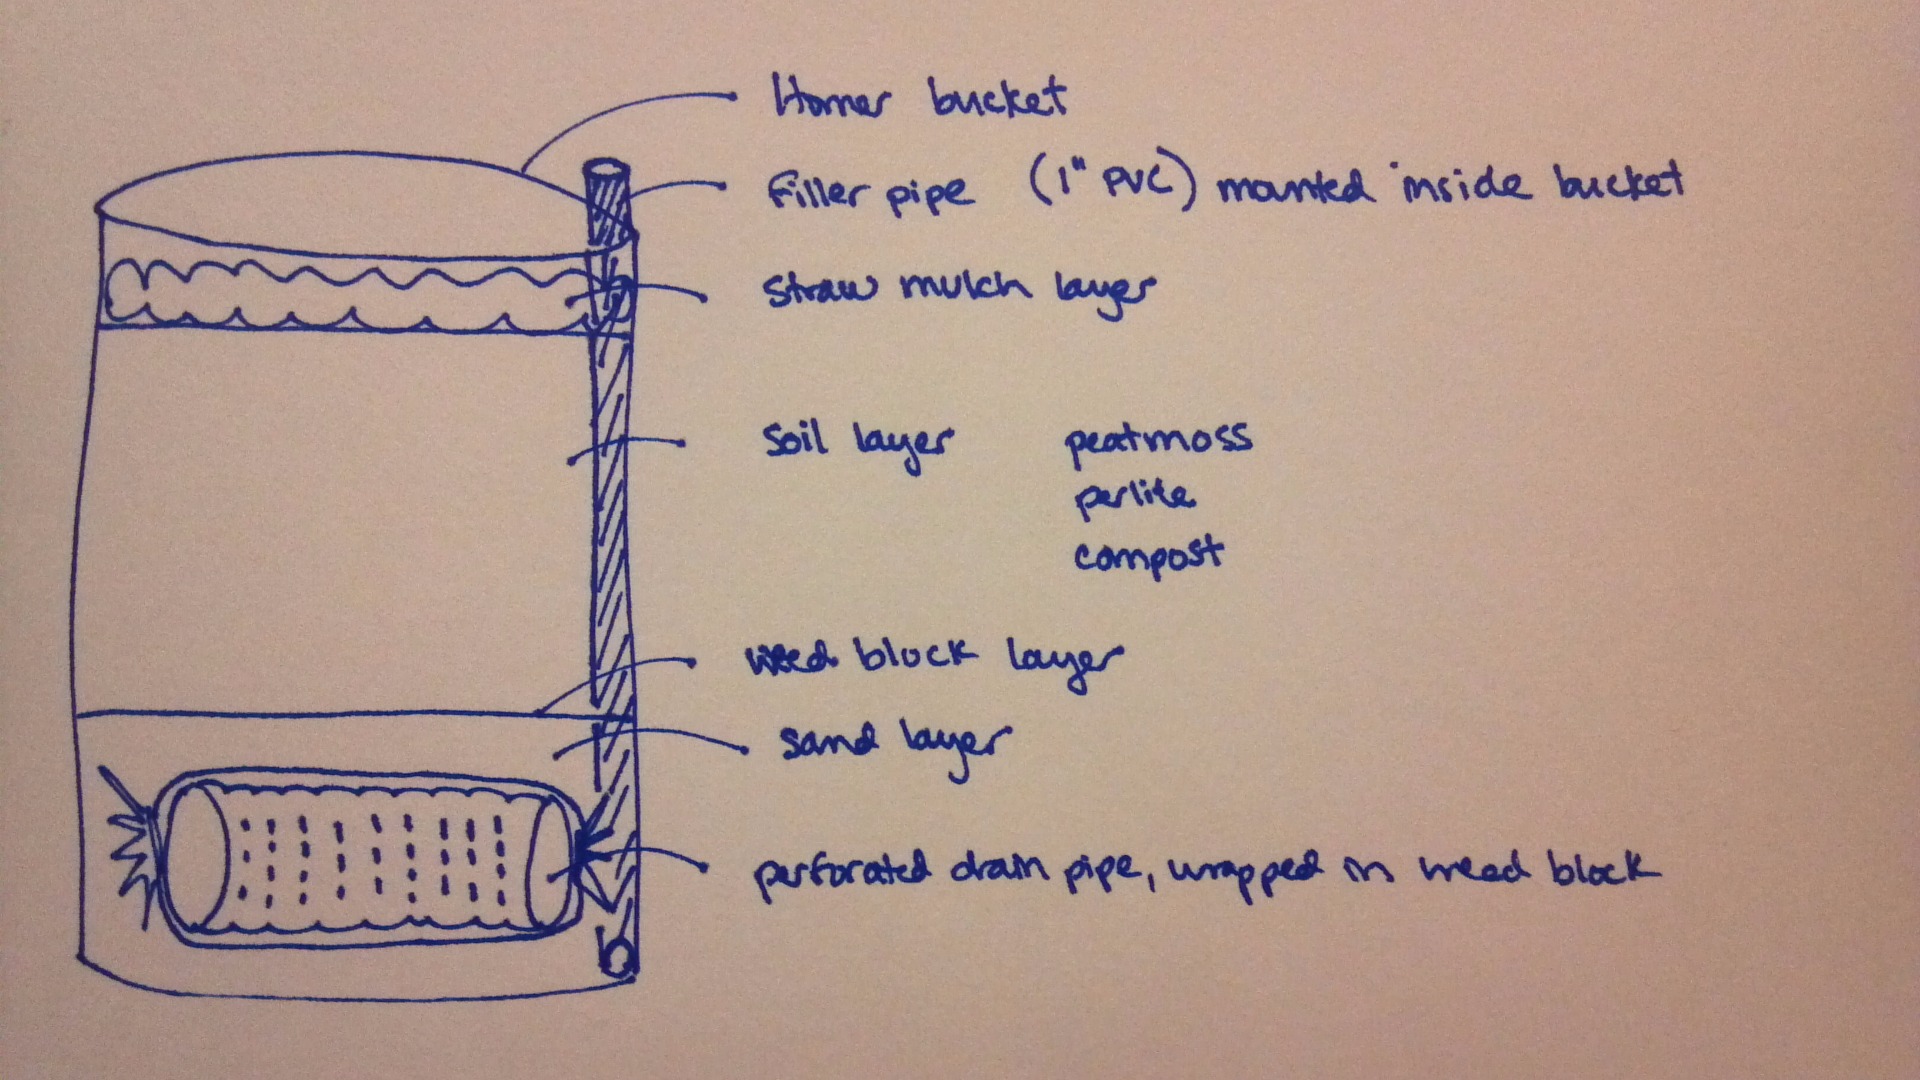 Homer bucket
Filler pipe (1" PVC) mounted inside bucket
straw mulch layer
soil layer peatmoss
perlite
compost
weed block layer
sand layer
perforated drain pipe, wrapped in weed block